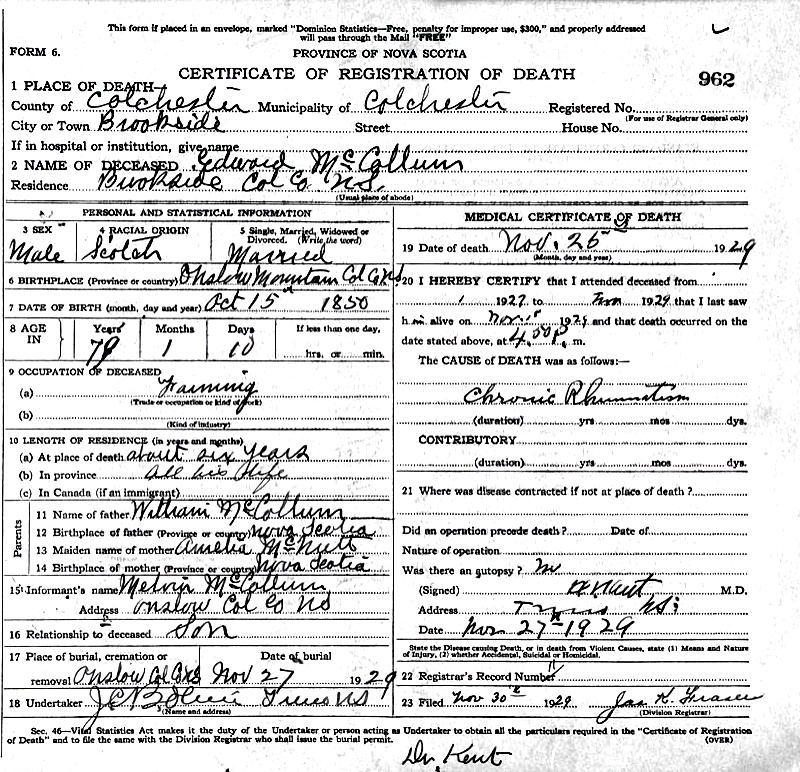 This form if placed in an envelope, marked "Dominion Statistics—Free, penalty for improper use, $300," and properly addressed
will pass through the Mail "FREE"
FORM 6.
PROVINCE OF NOVA SCOTIA
CERTIFICATE OF REGISTRATION OF DEATH
962
1 PLACE OF DEATH—
County of Colchester Municipality of Colchester Registered No.
(For use of Registrar General only)
City or Town Brookside Street House No.
If in hospital or institution, give name
2 NAME OF DECEASED Edward McCollum
Residence Brookside Col Co NS.
(Usual place of abode)
PERSONAL AND STATISTICAL INFORMATION
3 SEX 4 RACIAL ORIGIN 5 Single, Married, Widowed or
Divorced. (Write the word)
Male Scotch Married
6 BIRTHPLACE (Province or country) Onslow Mountain Col Co NS
7 DATE OF BIRTH (month, day and year) Oct 15th 1850
8 AGE IN Years Months Days If less than one day,
79 1 10 hrs. or min.
9 OCCUPATION OF DECEASED
(a) Farming
(Trade or occupation or kind of work)
(b)
(Kind of industry)
10 LENGTH OF RESIDENCE (in years and months)
(a) At place of death about six years
(b) In province all his life
(c) In Canada (if an immigrant)
Parents
11 Name of father William McCollum
12 Birthplace of father (Province or country) Nova Scotia
13 Maiden name of mother Amelia McNutt
14 Birthplace of mother (Province or country) Nova Scotia
15 Informant's name Melvin McCollum
Address Onslow Col Co NS
16 Relationship to deceased Son
17 Place of burial, cremation or Date of burial
removal Onslow Col Co NS Nov 27 1929
18 Undertaker Truro NS
(Name and address)
MEDICAL CERTIFICATE OF DEATH
19 Date of death Nov. 25 1929
(Month, day and year)
20 I HEREBY CERTIFY that I attended deceased from
1927 to 1929 that I last saw
h im alive on Nov. 1929 and that death occurred on the
date stated above, at 4.50 P. m.
The CAUSE of DEATH was as follows:—
Chronic Rheumatism
(duration) yrs mos dys.
CONTRIBUTORY
(duration) yrs mos dys.
21 Where was disease contracted if not at place of death?
Did an operation precede death? Date of
Nature of operation
Was there an autopsy?
(Signed) M.D.
Address Truro NS.
Date Nov 27th 1929
State the Disease causing Death, or in death from Violent Causes, state (1) Means and Nature
of Injury, (2) whether Accidental, Suicidal or Homicidal.
22 Registrar's Record Number 11
23 Filed Nov 30th 1929 Jas K. Fraser
(Division Registrar)
Sec. 46—Vital Statistics Act makes it the duty of the Undertaker or person acting as Undertaker to obtain all the particulars required in the "Certificate of Registration
of Death" and to file the same with the Division Registrar who shall issue the burial permit. (OVER)
Dr Kent